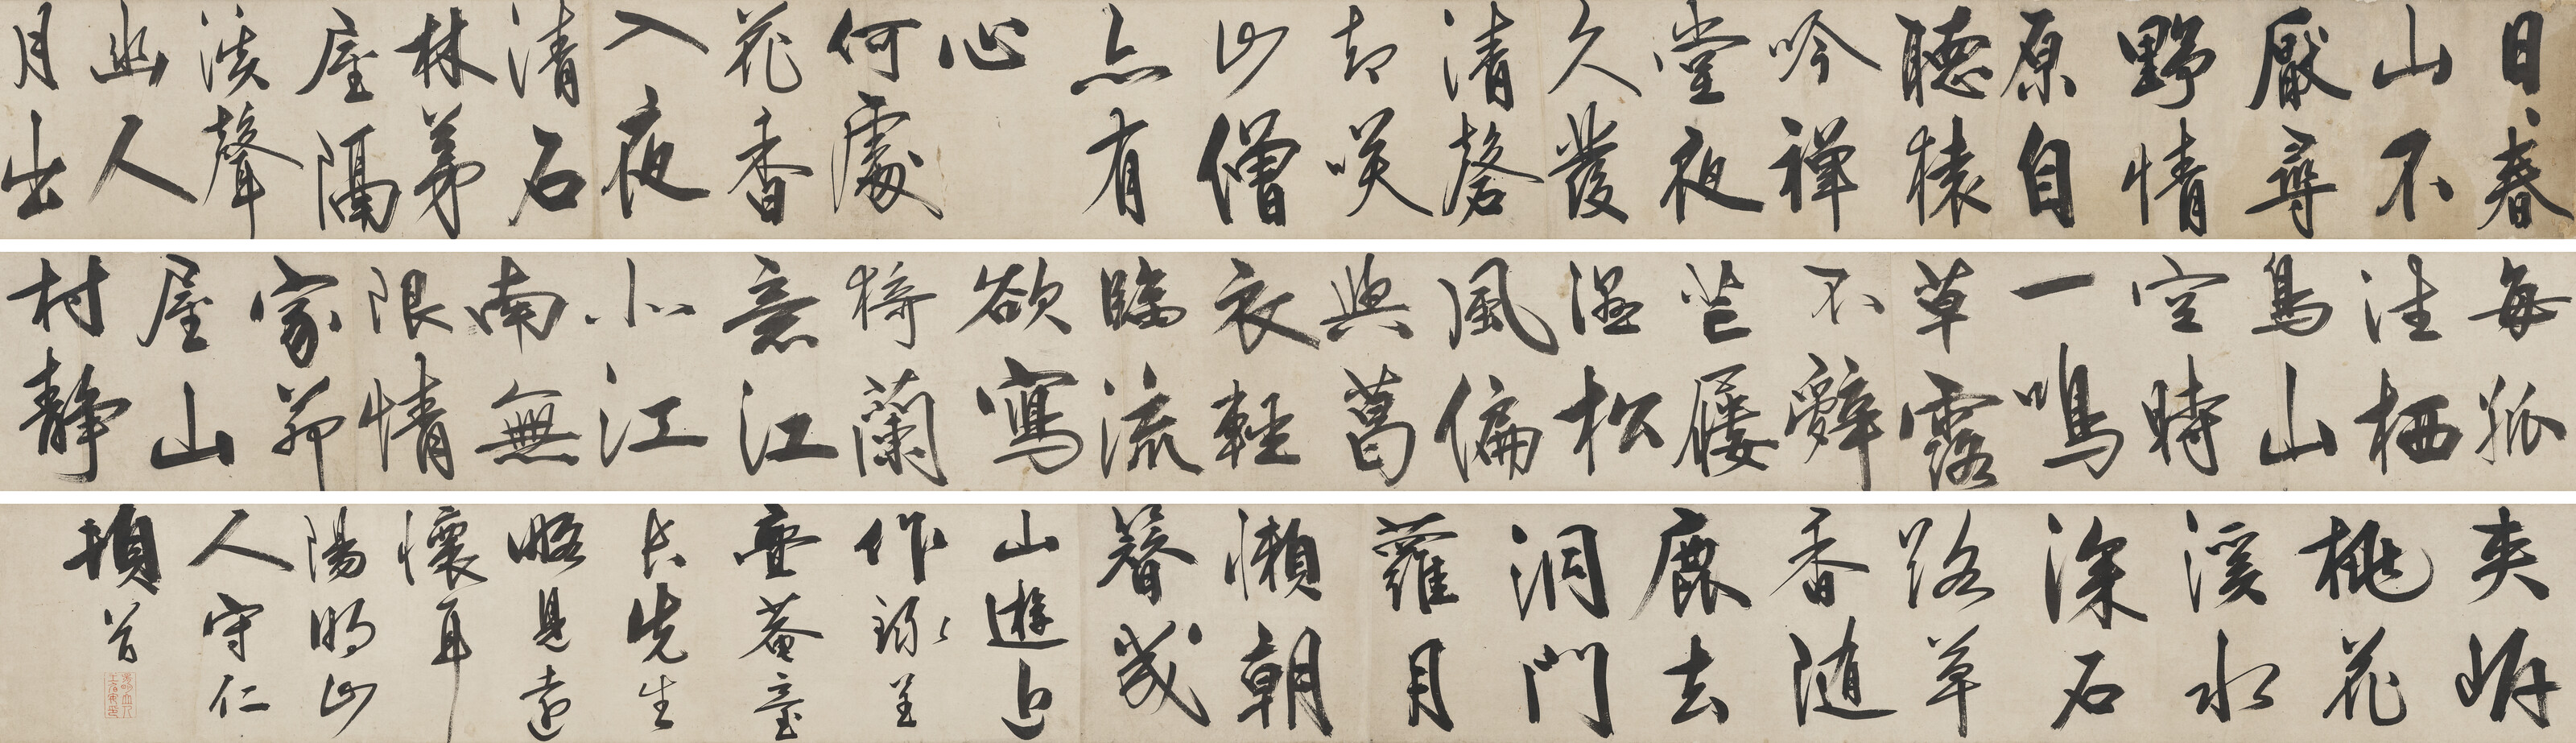 日、春
山不
厭尋
野情
原自
聽猿
吟禪
堂夜
久發
清磬
却咲
山僧
亦有
心
何處
花香
入夜
清石
林茅
屋隔
溪聲
幽人
月出
每孤
往栖
鳥山
空時
一鳴
草露
不辭
芒屨
濕松
風偏
與葛
衣輕
臨流
欲寫
猗蘭
意江
北江
南無
限情
家茆
屋山
村靜
夾岍
桃花
溪水
深石
路草
香隨
鹿去
洞門
蘿月
懶朝
簪幾
山遊近
作録呈
菴臺
長先生
略見遠
懷耳
陽明山
人守仁
頓首